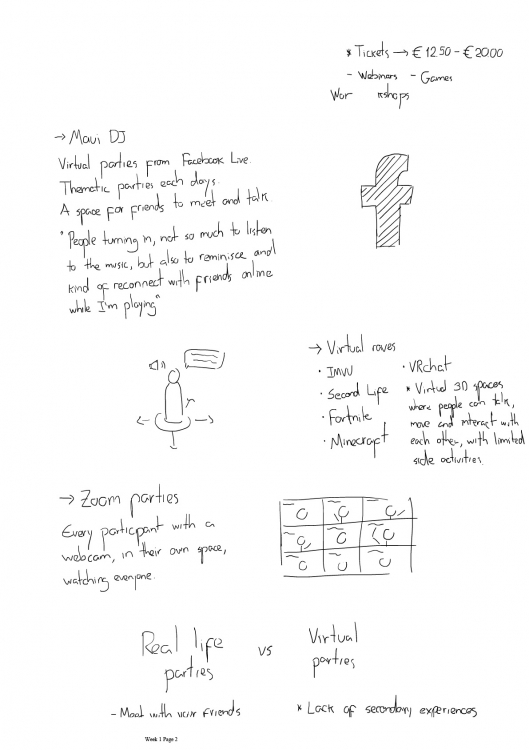 * Tickets → €12.50 - €20.00
- Webinars - Games
Wor kshops
→ Maui DJ
Virtual parties from Facebook Live.
Thematic parties each days.
A space for friends to meet and talk
"People turning in, not so much to listen
to the music, but also to reminisce and
kind of reconnect with friends online
while I'm playing"
→ Virtual raves
· IMVU
· Second Life
· Fortnite
· Minecraft
· VRchat
* Virtual 3D spaces
where people can talk,
move and interact with
each other, with limited
side activities.
→ Zoom parties
Every participant with a
webcam, in their own space,
watching everyone.
Real life
parties
vs
Virtual
parties
- Meet with your friends
* Lack of secondary experiences
Week 1 Page 2